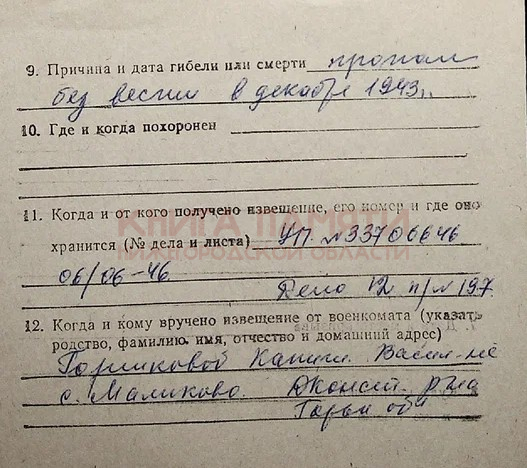 9. Причина и дата гибели или смерти пропал
без вести в декабре 1943г.
10. Где и когда похоронен
11. Когда и от кого получено извещение, его номер и где оно
КНИГА ПАМЯТИ
хранится (№ дела и листа) УП. №33706646
НИЖЕГОРОДСКОЙ ОБЛАСТИ
06/06-46
Дело 12 п/№ 197
12. Когда и кому вручено извещение от военкомата (указать
родство, фамилию, имя, отчество и домашний адрес)
Васил-не
с. Маликово. р-на
Горьк обл